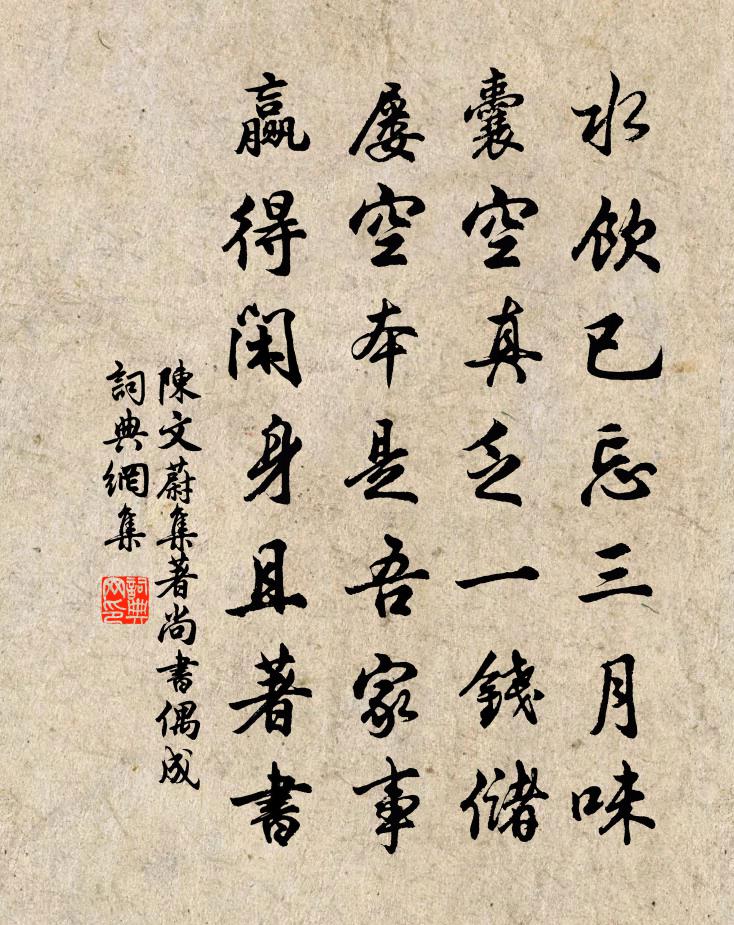 水飲已忘三月味
囊空真乏一錢儲
屢空本是吾家事
贏得閑身且著書
陳文蔚集著尚書偶成
詞典網集
詞典網印